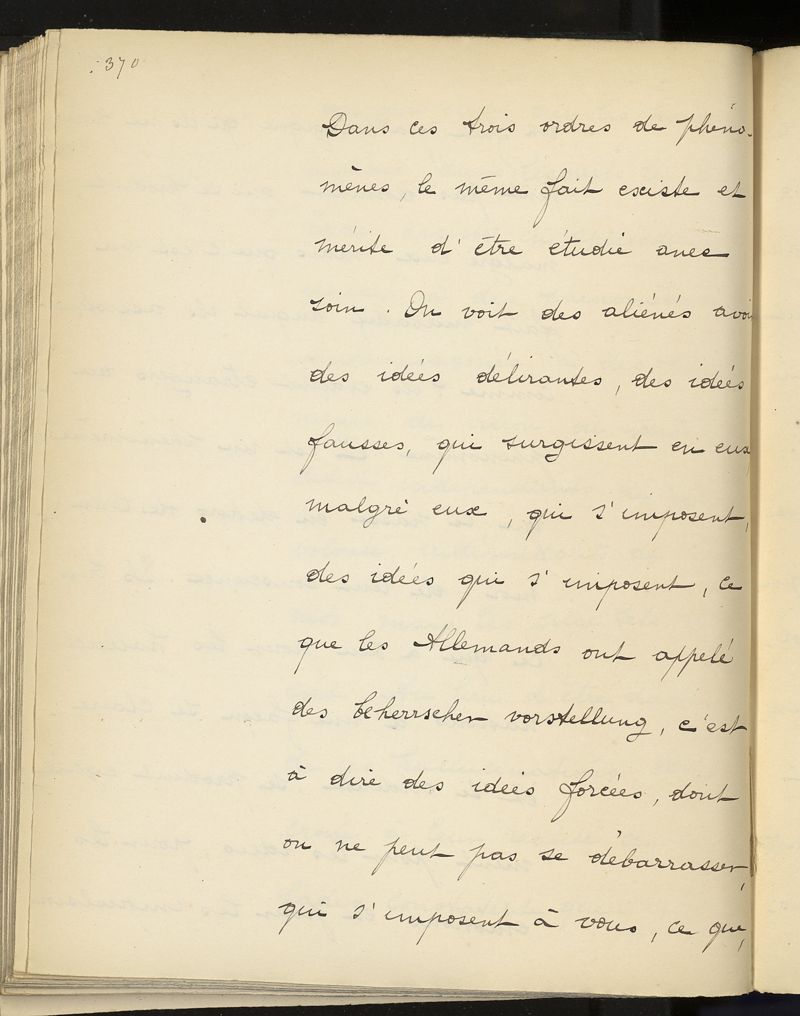 370
Dans ces trois ordres de phéno-
mènes, le même fait existe et
mérite d'être étudié avec
soin. On voit des aliénés avoir
des idées délirantes, des idées
fausses, qui surgissent en eux
malgré eux, qui s'imposent,
des idées qui s'imposent, ce
que les Allemands ont appelé
des beherrschen vorstellung, c'est
à dire des idées forcées, dont
on ne peut pas se débarrasser,
qui s'imposent à vous, ce que,